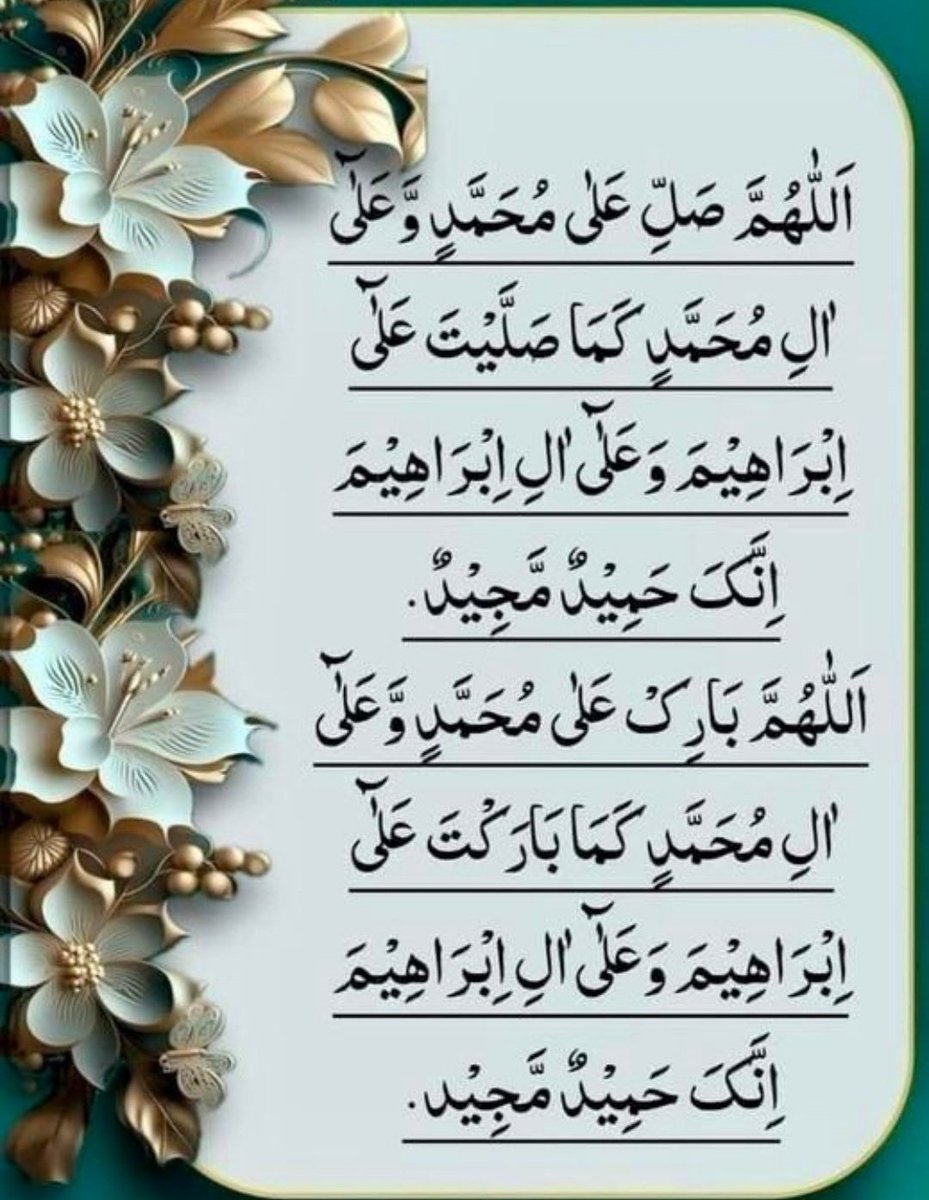 اَللّٰهُمَّ صَلِّ عَلٰی مُحَمَّدٍ وَّعَلٰٓی
اٰلِ مُحَمَّدٍ کَمَا صَلَّیْتَ عَلٰٓی
اِبْرَاهِیْمَ وَعَلٰٓی اٰلِ اِبْرَاهِیْمَ
اِنَّکَ حَمِیْدٌ مَّجِیْدٌ.
اَللّٰهُمَّ بَارِکْ عَلٰی مُحَمَّدٍ وَّعَلٰٓی
اٰلِ مُحَمَّدٍ کَمَا بَارَکْتَ عَلٰٓی
اِبْرَاهِیْمَ وَعَلٰٓی اٰلِ اِبْرَاهِیْمَ
اِنَّکَ حَمِیْدٌ مَّجِیْد.